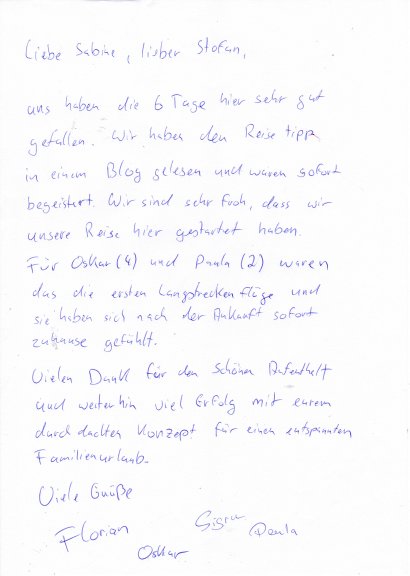 Liebe Sabine, lieber Stefan,
uns haben die 6 Tage hier sehr gut
gefallen. Wir haben den Reisetipp
in einem Blog gelesen und waren sofort
begeistert. Wir sind sehr froh, dass wir
unsere Reise hier gestartet haben.
Für Oskar (4) und Paula (2) waren
das die ersten Langstreckenflüge und
sie haben sich nach der Ankunft sofort
zuhause gefühlt.
Vielen Dank für den schönen Aufenthalt
und weiterhin viel Erfolg mit eurem
durchdachten Konzept für einen entspannten
Familienurlaub.
Viele Grüße
Florian Paula
Oskar